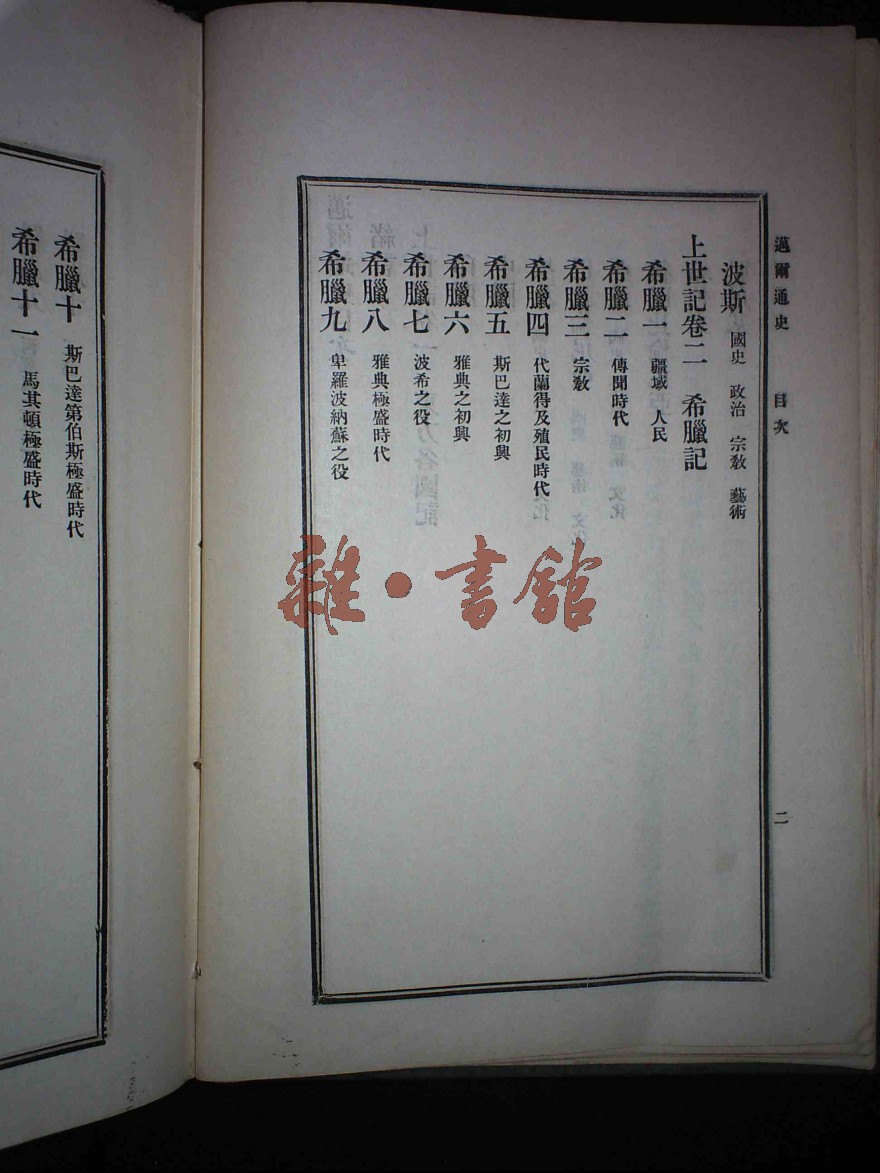 邁爾通史 目次 二
波斯 國史 政治 宗教 藝術
上世記卷二 希臘記
希臘一 疆域 人民
希臘二 傳聞時代
希臘三 宗教
希臘四 代蘭得及殖民時代
希臘五 斯巴達之初興
希臘六 雅典之初興
希臘七 波希之役
希臘八 雅典極盛時代
希臘九 卑羅波納蘇之役
希臘十 斯巴達第伯斯極盛時代
希臘十一 馬其頓極盛時代
雜·書館